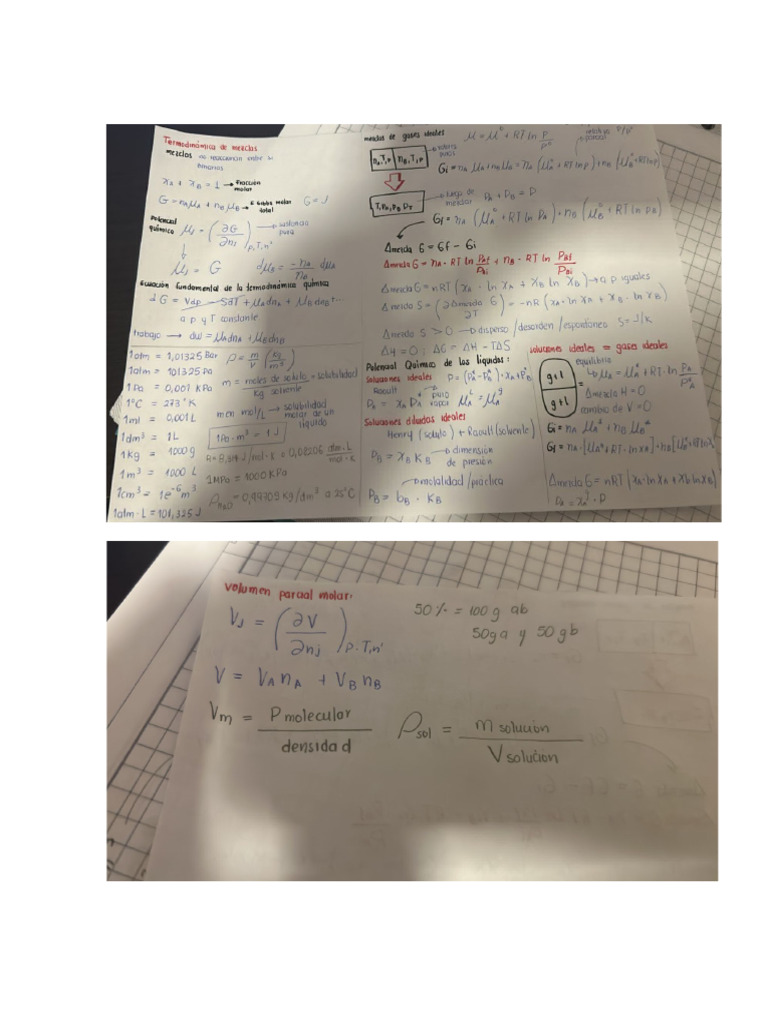 Termodinámica de mezclas
mezclas no reaccionan entre sí
binarias
xA + xB = 1 → Fracción molar
G = nAμA + nBμB → E Gibbs molar total G = J
Potencial químico μJ = (∂G/∂nj)p,T,n' → sustancia pura
μJ = G dμB = -nA/nB dμA
Ecuación fundamental de la termodinámica química
dG = Vdp - SdT + μAdnA + μBdnB + ...
a p y T constante
trabajo → dw = μAdnA + μBdnB
1atm = 1,01325 Bar ρ = m/v (kg/m³)
1atm = 101325 Pa
1Pa = 0,001 KPa m = moles de soluto/Kg solvente = solubilidad
1°C = 273°K
1ml = 0,001L mol/L → solubilidad molar de un líquido
1dm³ = 1L 1Pa·m³ = 1J
1kg = 1000g R = 8,314 J/mol·K = 0,08206 dm·L/mol·K
1m³ = 1000 L 1MPa = 1000KPa
1cm³ = 1e⁻⁶m³ ρH2O = 0,99709 Kg/dm³ a 25°C
1atm·L = 101,325 J
mezclas de gases ideales μ = μ° + RT ln p/p°
nA,T,P nB,T,P
Gi = nAμA + nBμB = nA(μ°A + RT ln p) + nB(μ°B + RT ln p)
T, pA, pB PT → luego de mezclar pA + pB = P
Gf = nA(μ°A + RT ln pA) + nB(μ°B + RT ln pB)
Δmezcla G = Gf - Gi
Δmezcla G = nA·RT ln PAf/PAi + nB·RT ln PBf/PBi
Δmezcla G = nRT(xA·ln xA + xB ln xB) → a p iguales
Δmezcla S = (∂Δmezcla G/∂T) = -nR(xA·ln xA + xB·ln xB)
Δmezcla S > 0 → disperso/desorden/espontaneo S = J/K
ΔH = 0; ΔG = ΔH - TΔS
Potencial Químico de los líquidos:
Soluciones ideales P = (P*A - P*B)·xA + P*B
Raoult
PA = xA P*A → puro vapor μA^L = μA^g
Soluciones diluidas ideales
Henry (soluto) + Raoult (solvente)
PB = xB KB → dimensión de presión
→ molalidad/práctica
PB = bB · KB
soluciones ideales = gases ideales
equilibrio
g+l
g+l
= μA = μ°A + RT·ln PA/P°A
Δmezcla H = 0
cambio de V = 0
Gi = nA μA* + nB μB*
Gf = nA·[μA* + RT·ln xA] + nB[μB* + RT ln xB]
Δmezcla G = nRT(xA·ln xA + xb ln xB)
PA = xA · P
Volumen parcial molar:
VJ = (∂V/∂nj)P,T,n'
V = VAnA + VBnB
Vm = Pmolecular/densidad
50% = 100g ab
50ga y 50gb
ρsol = m solución/V solución